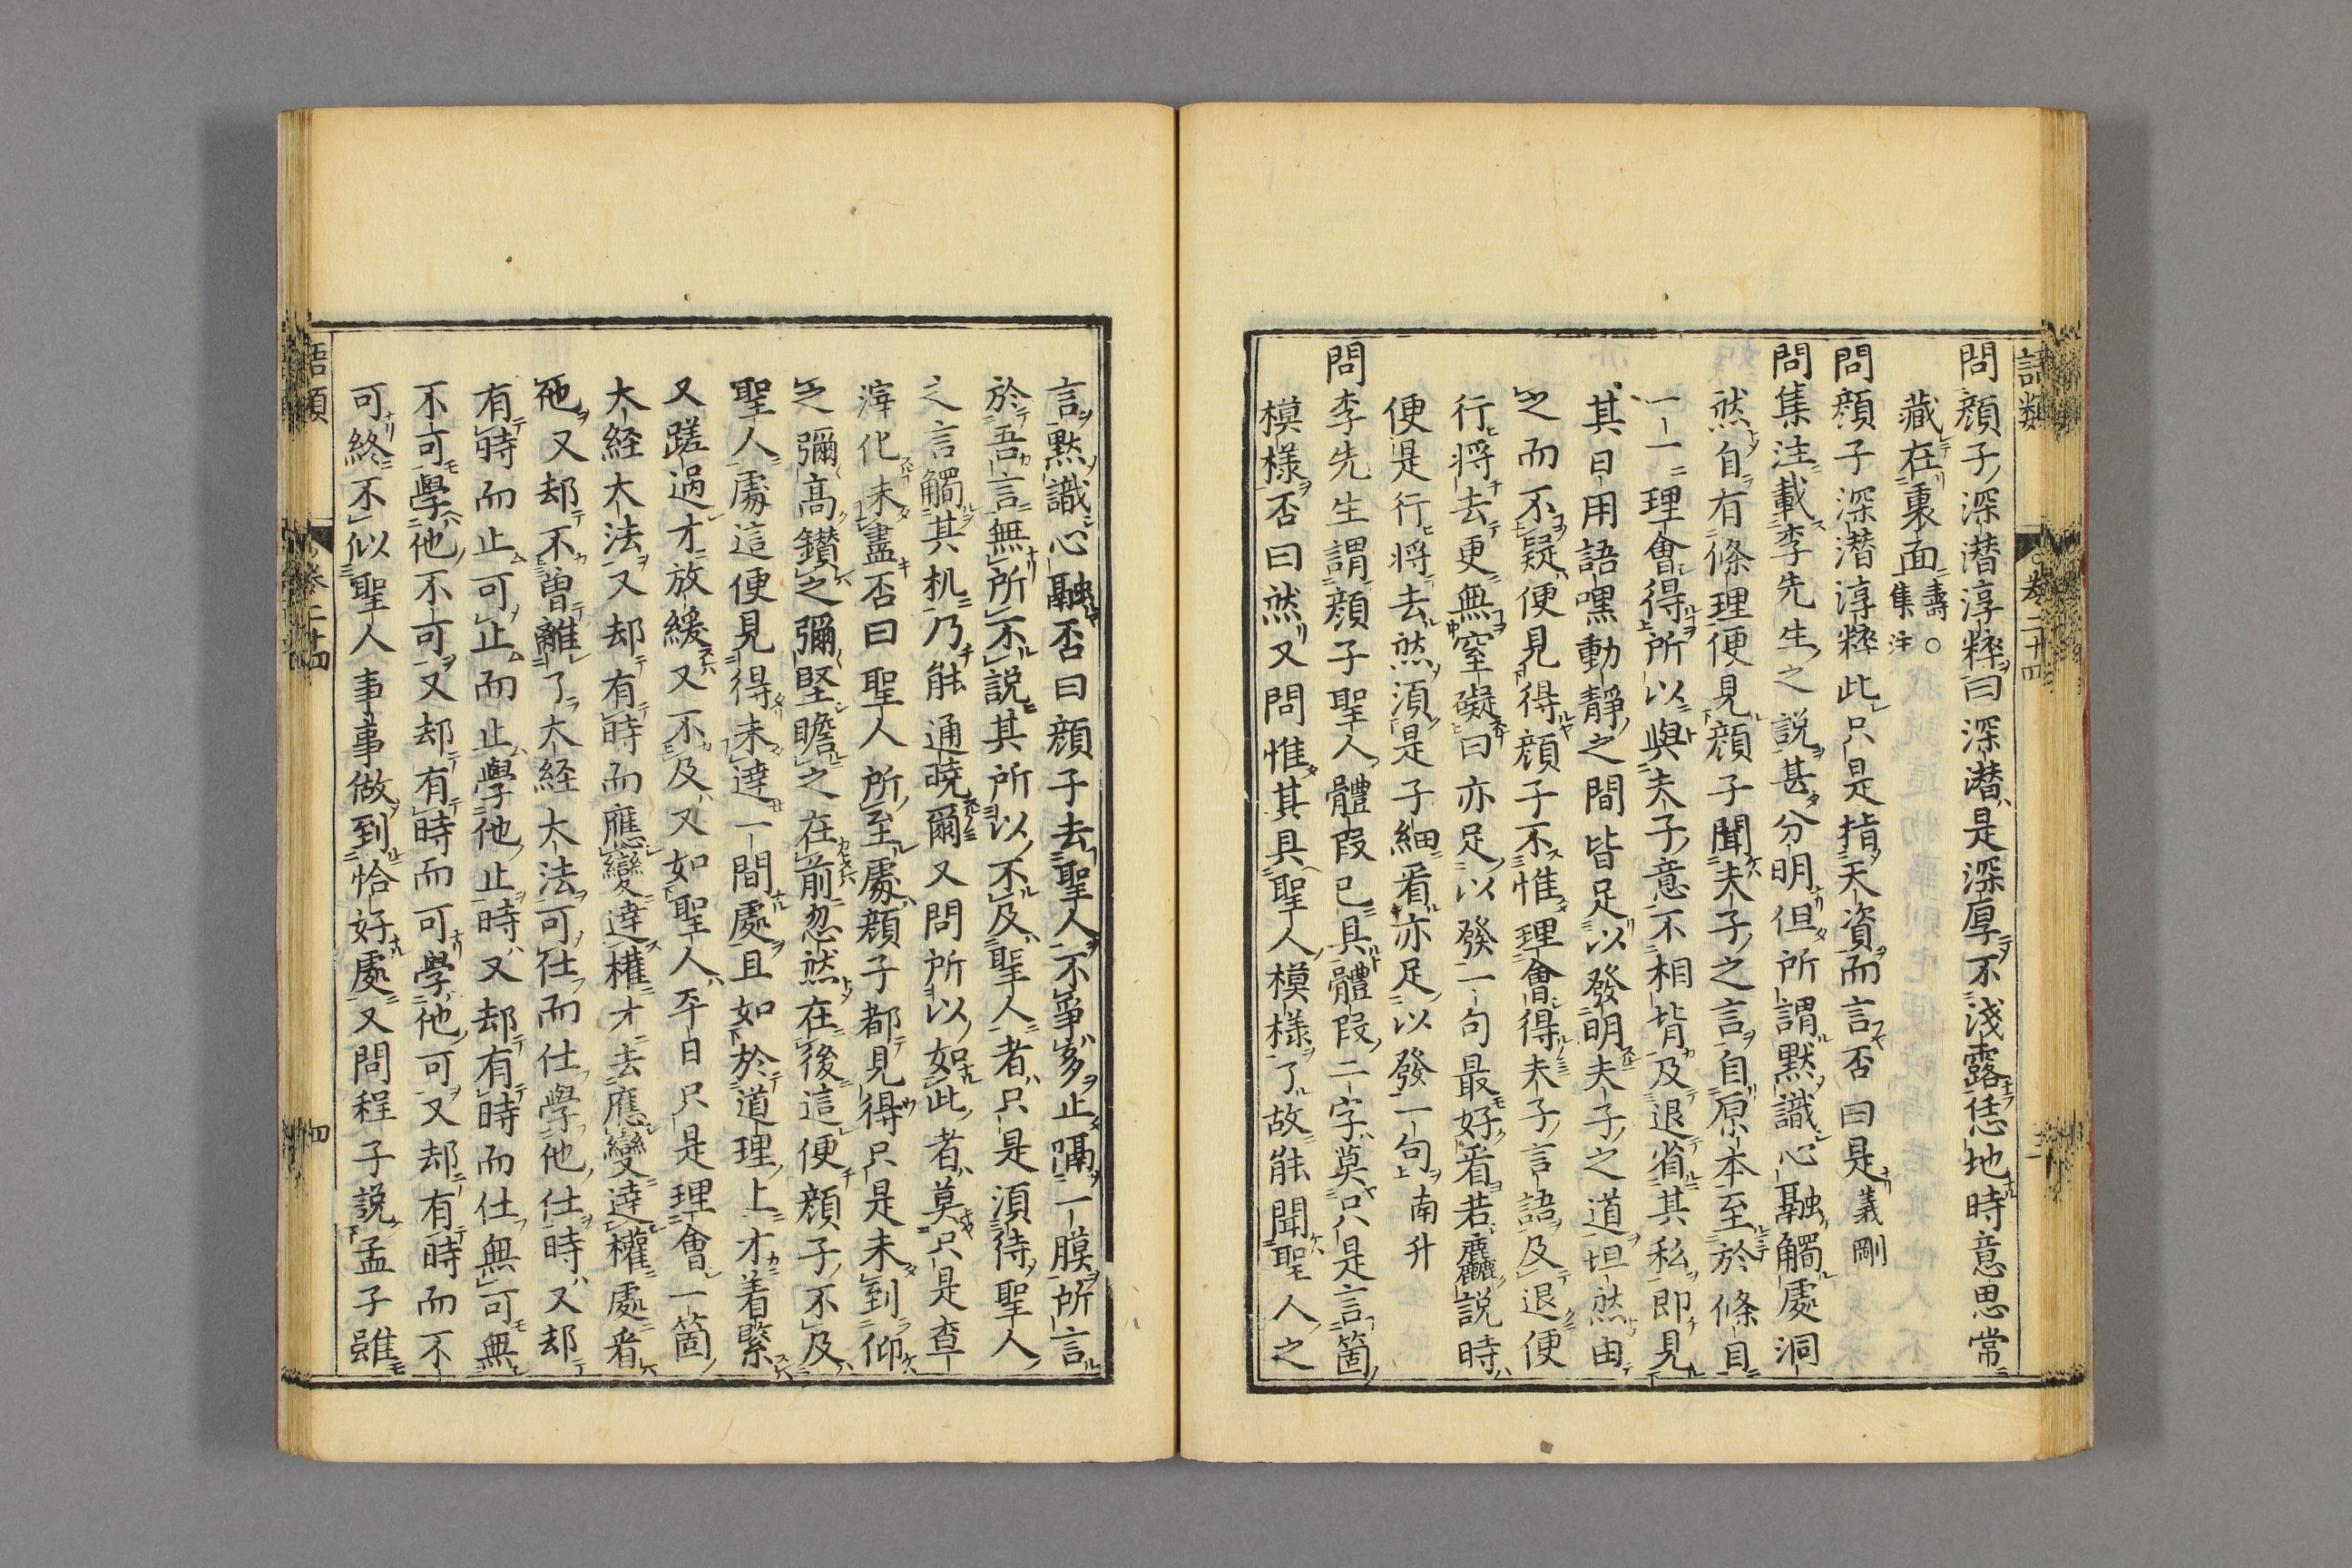 語類
卷二十四
三
問顔子深潜淳粹曰深潜是深厚不淺露恁地時意思常
藏在裏面壽○集注
問顔子深潜淳粹此只是指天資而言否曰是義剛
問集注載李先生之説甚分明但所謂黙識心融觸處洞
然自有條理便見顔子聞夫子之言自原本至於條目
一一理會得所以與夫子意不相背及退省其私即見
其日用語嘿動靜之間皆足以發明夫子之道坦然由
之而不疑便見得顔子不惟理會得夫子言語及退便
行將去更無窒礙曰亦足以發一句最好看若麤説時
便是行将去然須是子細看亦足以發一句南升
問李先生謂顔子聖人體段已具體段二字莫只是言箇
模様否曰然又問惟其具聖人模様了故能聞聖人之
言黙識心融否曰顔子去聖人不爭多止隔一膜所言
於吾言無所不説其所以不及聖人者只是須待聖人
之言觸其机乃能通曉爾又問所以如此者莫只是査
滓化未盡否曰聖人所至處顔子都見得只是未到仰
之彌高鑚之彌堅瞻之在前忽然在後這便顔子不及
聖人處這便見得未達一間處且如於道理上才着緊
又蹉過才放緩又不及又如聖人平日只是理會一箇
大経大法又却有時而應變達權才去應變達權處看
他又却不曽離了大経大法可仕而仕學他仕時又却
有時而止可止而止學他止時又却有時而仕無可無
不可學他不可又却有時而可學他可又却有時而不
可終不似聖人事事做到恰好處又問程子説孟子雖
語類
卷二十四
四